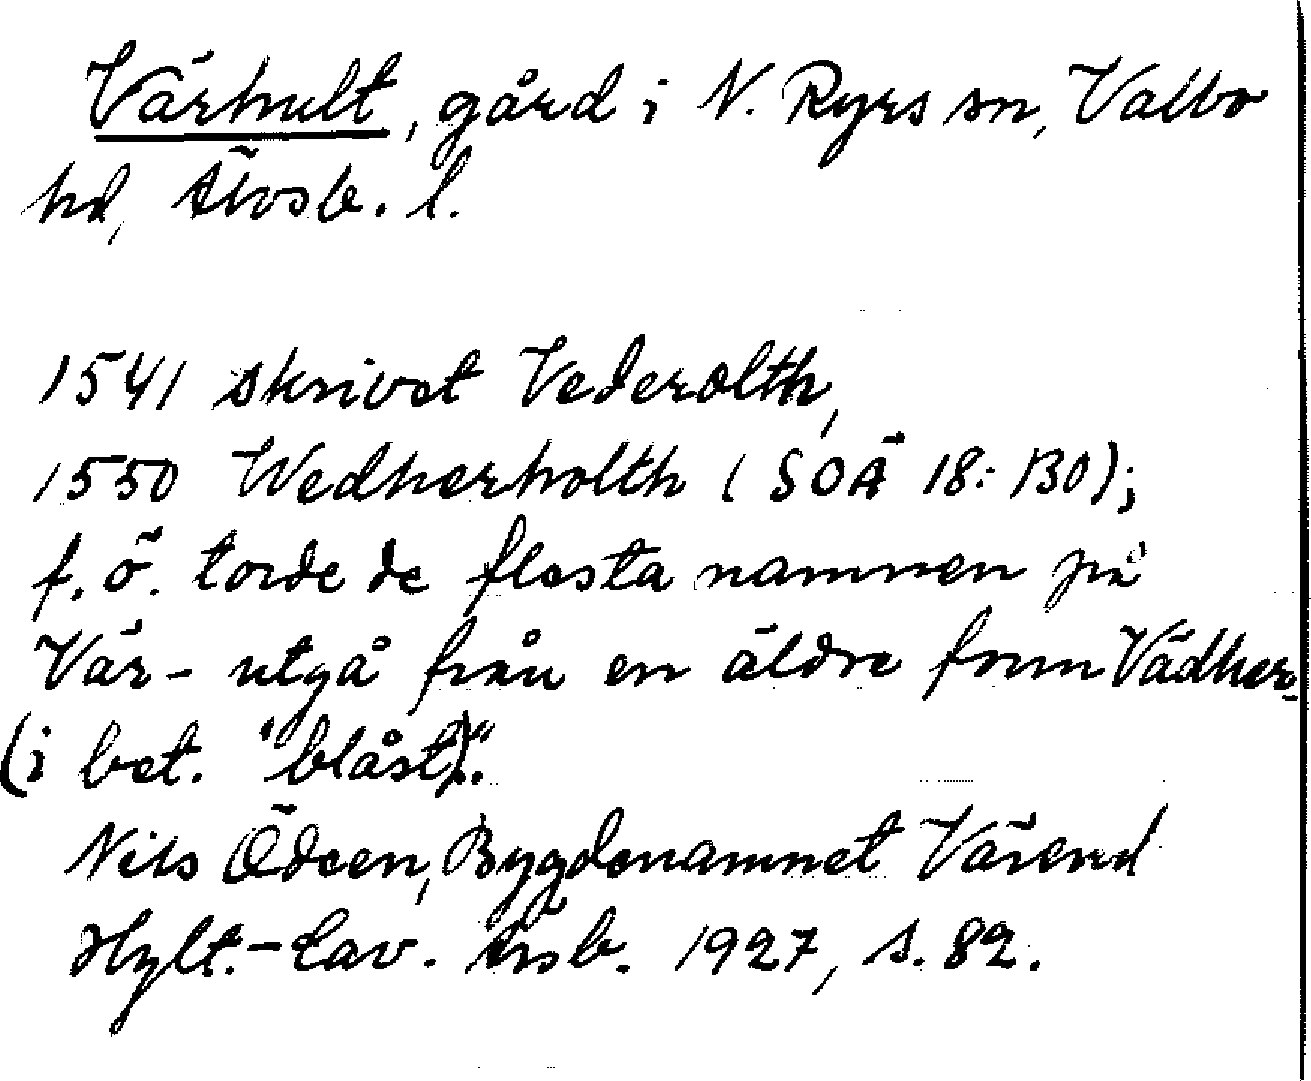 Värhult, gård i N. Ryrs sn, Valbo
hd, Älvsb. l.
1541 skrivet Vederolth,
1550 Wedherholth (SOÄ 18: 130);
f. ö. torde de flesta namnen på
Vär- utgå från en äldre form Vädher-
(i bet. "blåst)".
Nils Ödeen, Bygdenamnet Värend
Hylt.-Cav. Årsb. 1927, s. 82.